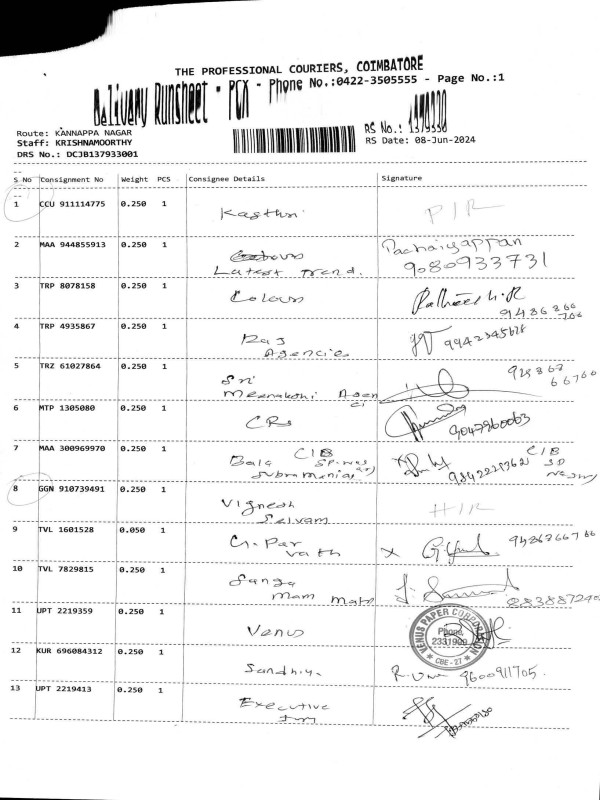 THE PROFESSIONAL COURIERS, COIMBATORE
Delivery Runsheet - PCX - Phone No.:0422-3505555 - Page No.:1
Route: KANNAPPA NAGAR
RS No.: 1379330
Staff: KRISHNAMOORTHY
RS Date: 08-Jun-2024
DRS No.: DCJB137933001
S No Consignment No Weight PCS Consignee Details Signature
1 CCU 911114775 0.250 1 Kasthri
2 MAA 944855913 0.250 1 Pachaiyappan
Latest Trend. 9080933731
3 TRP 8078158 0.250 1 Colours
4 TRP 4935867 0.250 1 Raj
Agencies
5 TRZ 61027864 0.250 1 Sri
Meenakshi Agen
ci
6 MTP 1305080 0.250 1 CRs 9047960063
7 MAA 300969970 0.250 1 Bala CIB CIB
Subramanian
8 GGN 910739491 0.250 1 Vignesh
Selvam
9 TVL 1601528 0.050 1 G. Par
vath
10 TVL 7829815 0.250 1 Ganga
Mam
11 UPT 2219359 0.250 1 Venus VENUS PAPER CORPORATION
Phone
2331909
CBE - 27
12 KUR 696084312 0.250 1 Sandhiya 9600911705.
13 UPT 2219413 0.250 1 Executive
Inn